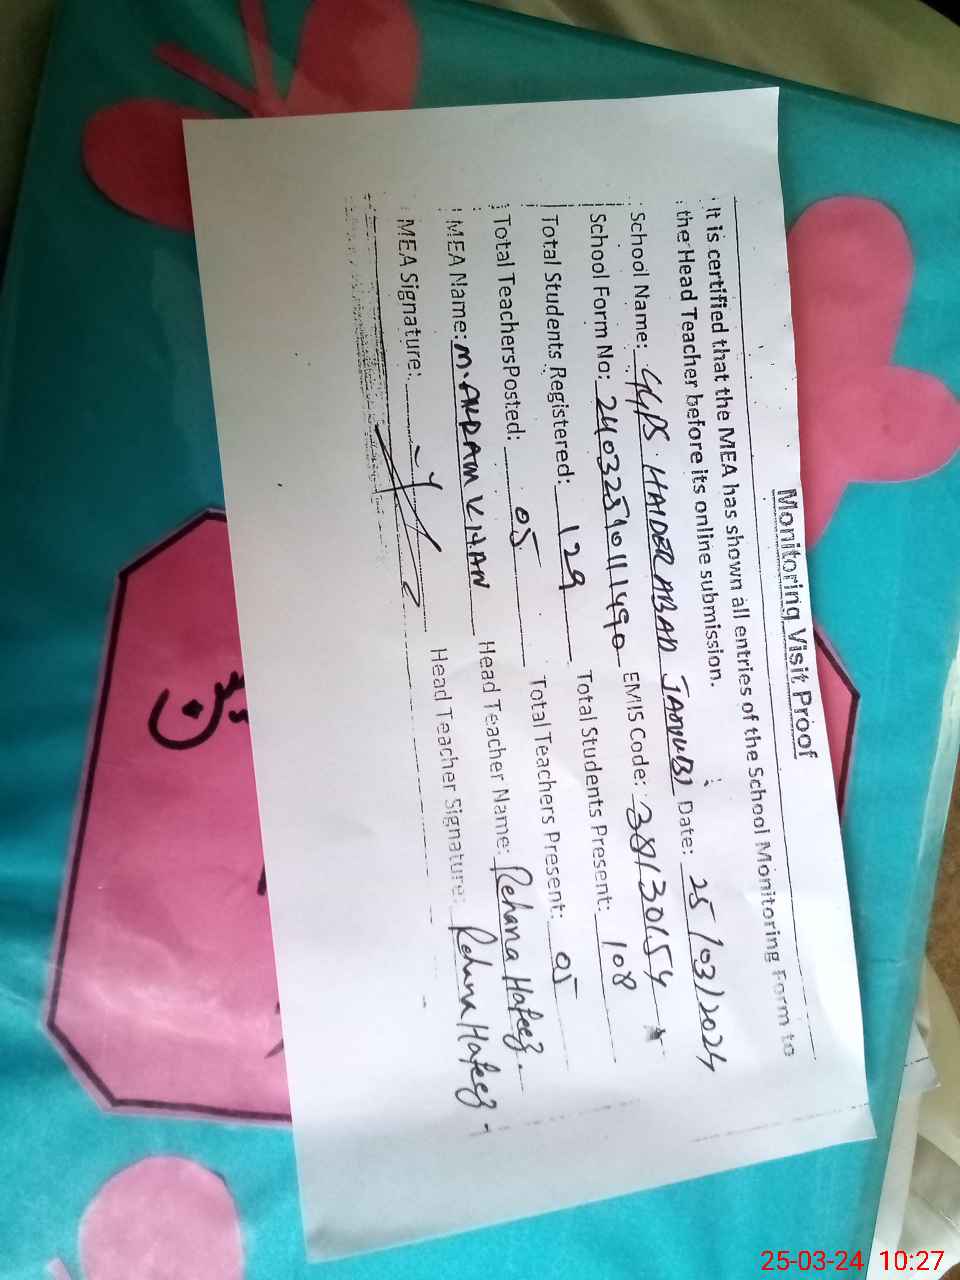 Monitoring Visit Proof
It is certified that the MEA has shown all entries of the School Monitoring Form to
the Head Teacher before its online submission.
School Name: GGPS HAIDERABAD JANUBI Date: 25/03/2024
School Form No: 24032591011490 EMIS Code: 38130154
Total Students Registered: 129 Total Students Present: 108
Total TeachersPosted: 05 Total Teachers Present: 05
MEA Name: M.AKRAM KHAN Head Teacher Name: Rehana Hafeez.
MEA Signature: Head Teacher Signature: Rehana Hafeez-
25-03-24 10:27